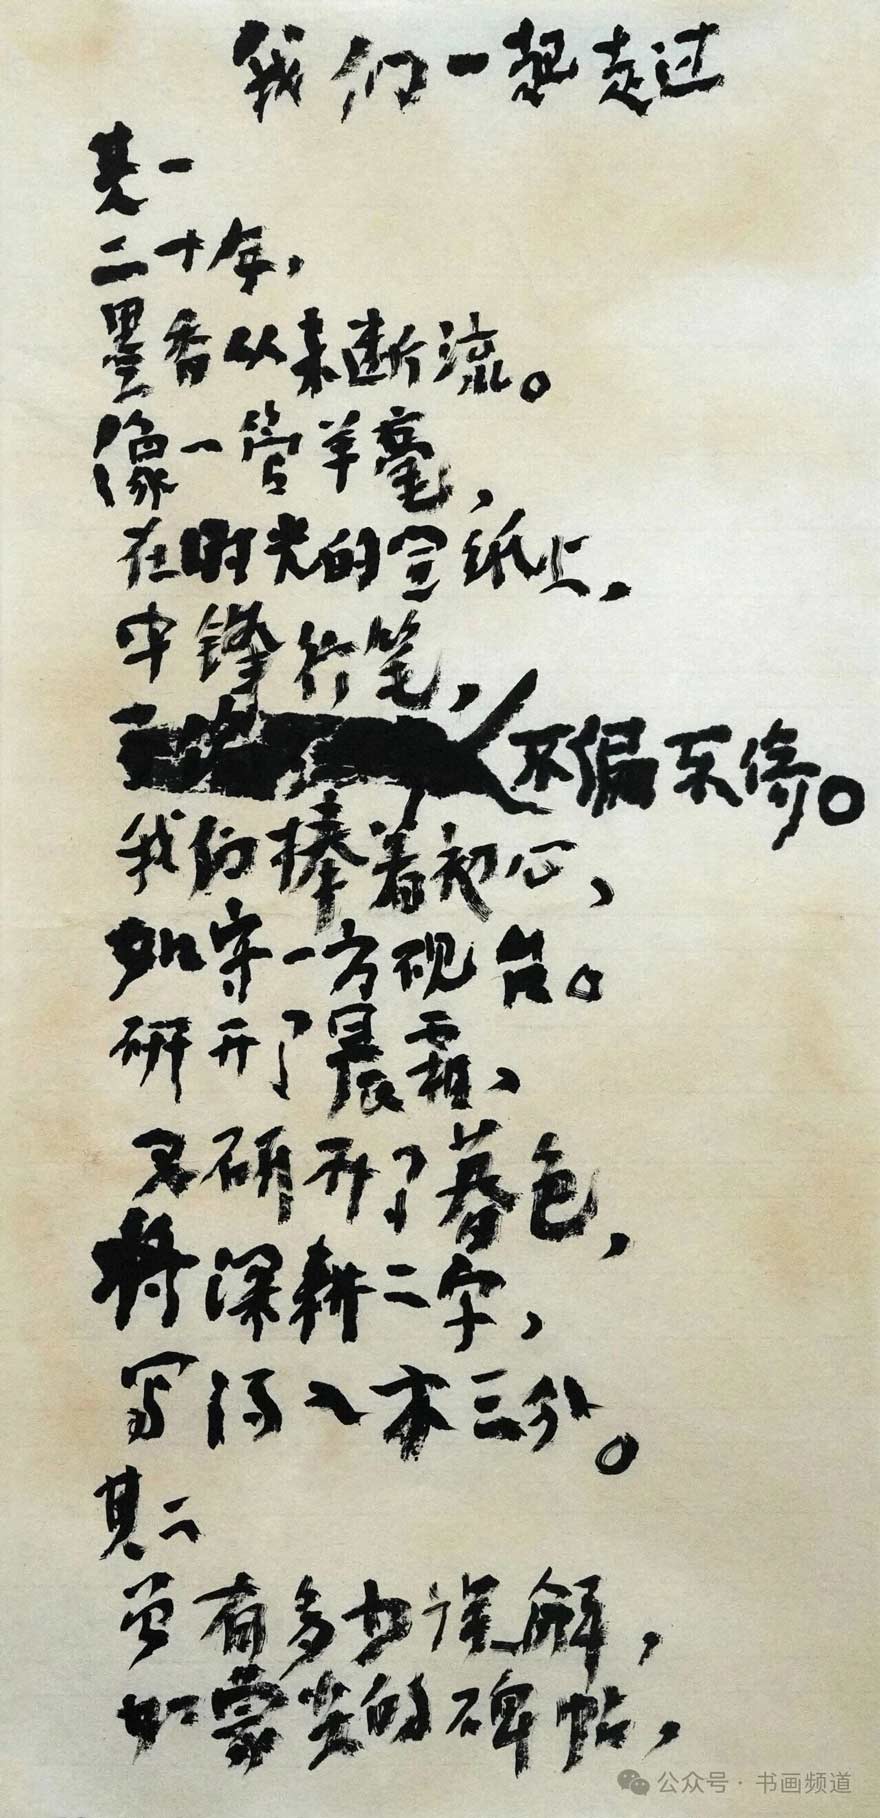 我们一起走过
其一
二十年，
墨香从未断流。
像一管羊毫，
在时光的宣纸上，
中锋行笔，
不偏不倚。
我们捧着初心，
如守一方砚台。
研开了晨霜、
又研开了暮色，
将深耕二字，
写得入木三分。
其二
曾有多少误解，
如蒙尘的碑帖，
公众号 · 书画频道